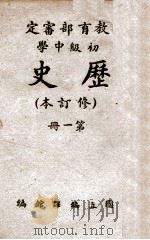 教育部審定
初級中學
歷史
(修訂本)
第一冊
國立編譯館編